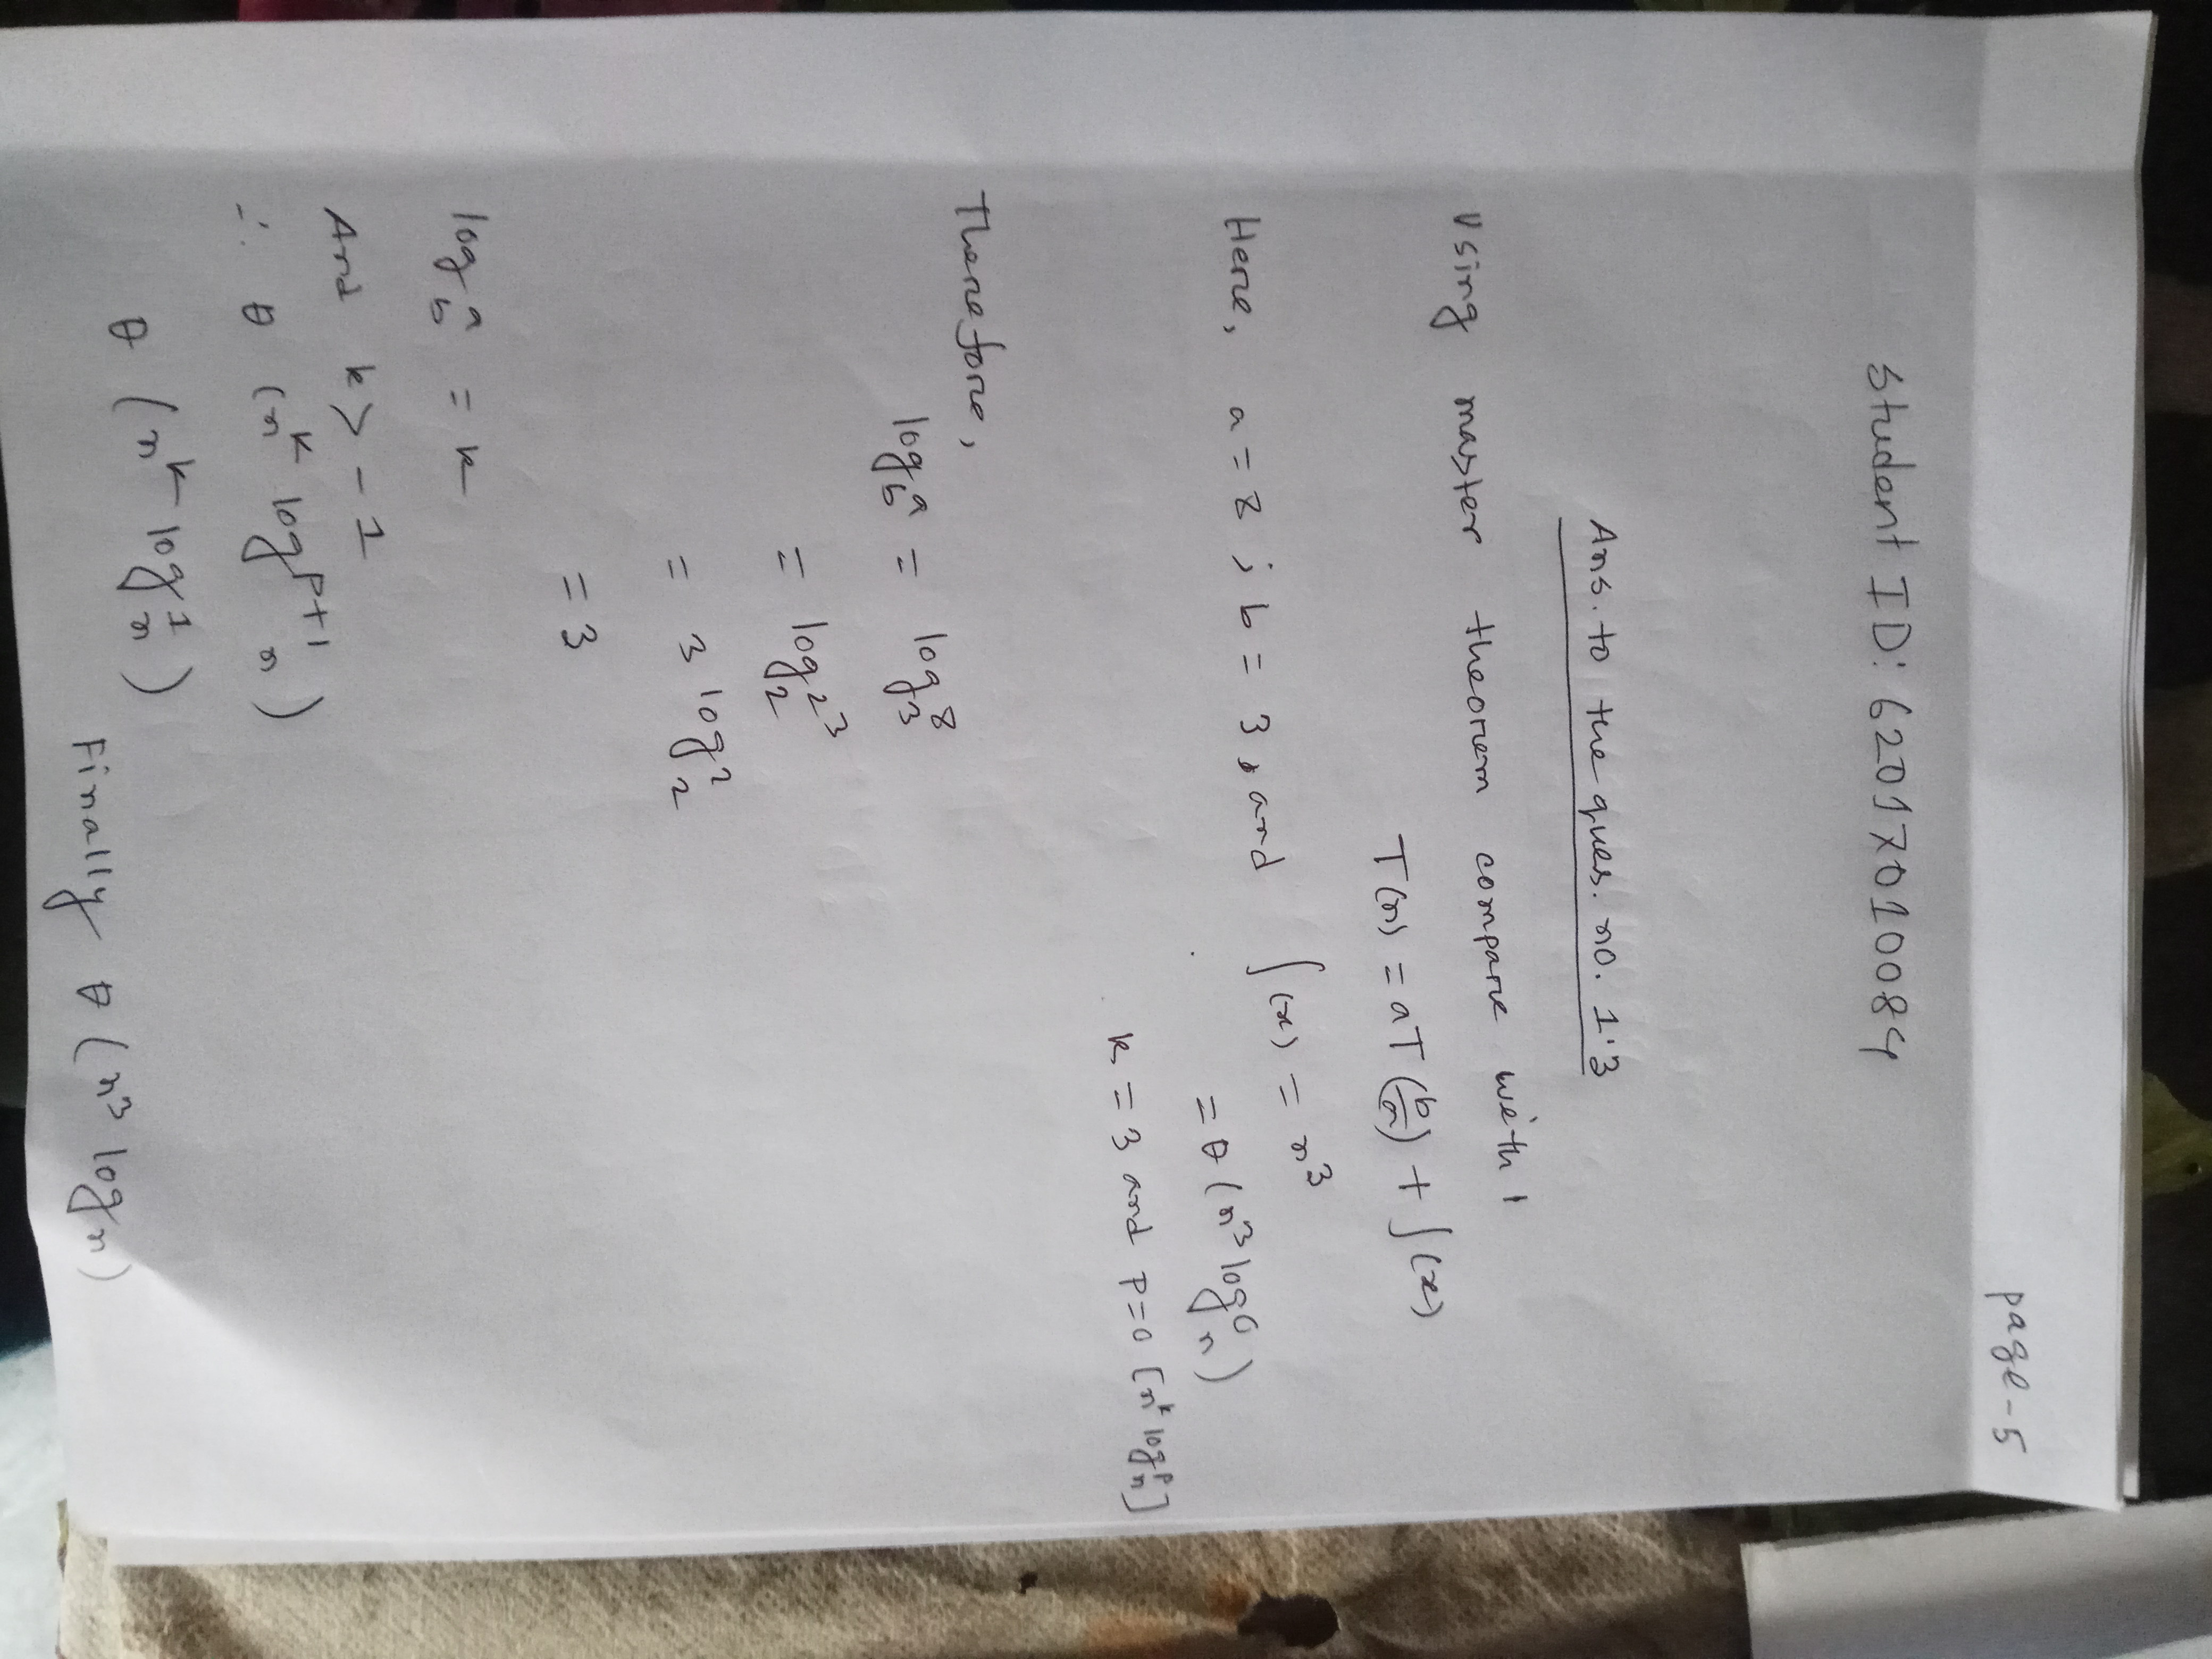 page-5
Student ID: 62017010084
Ans. to the ques. no. 1.3
Using master theorem compare with,
T(n) = aT(b/n) + ∫(x)
Here, a = 8 ; b = 3, and ∫(x) = n³
= θ (n³ log⁰ n)
k = 3 and P = 0 [nᵏ logᴾ n]
Therefore,
log_b a = log_3 8
= log_2 2³
= 3 log_2 2
= 3
log_b a = k
And k > -1
∴ θ (nᵏ log^(P+1) n)
θ (nᵏ log¹ n)
Finally θ (n³ log n)